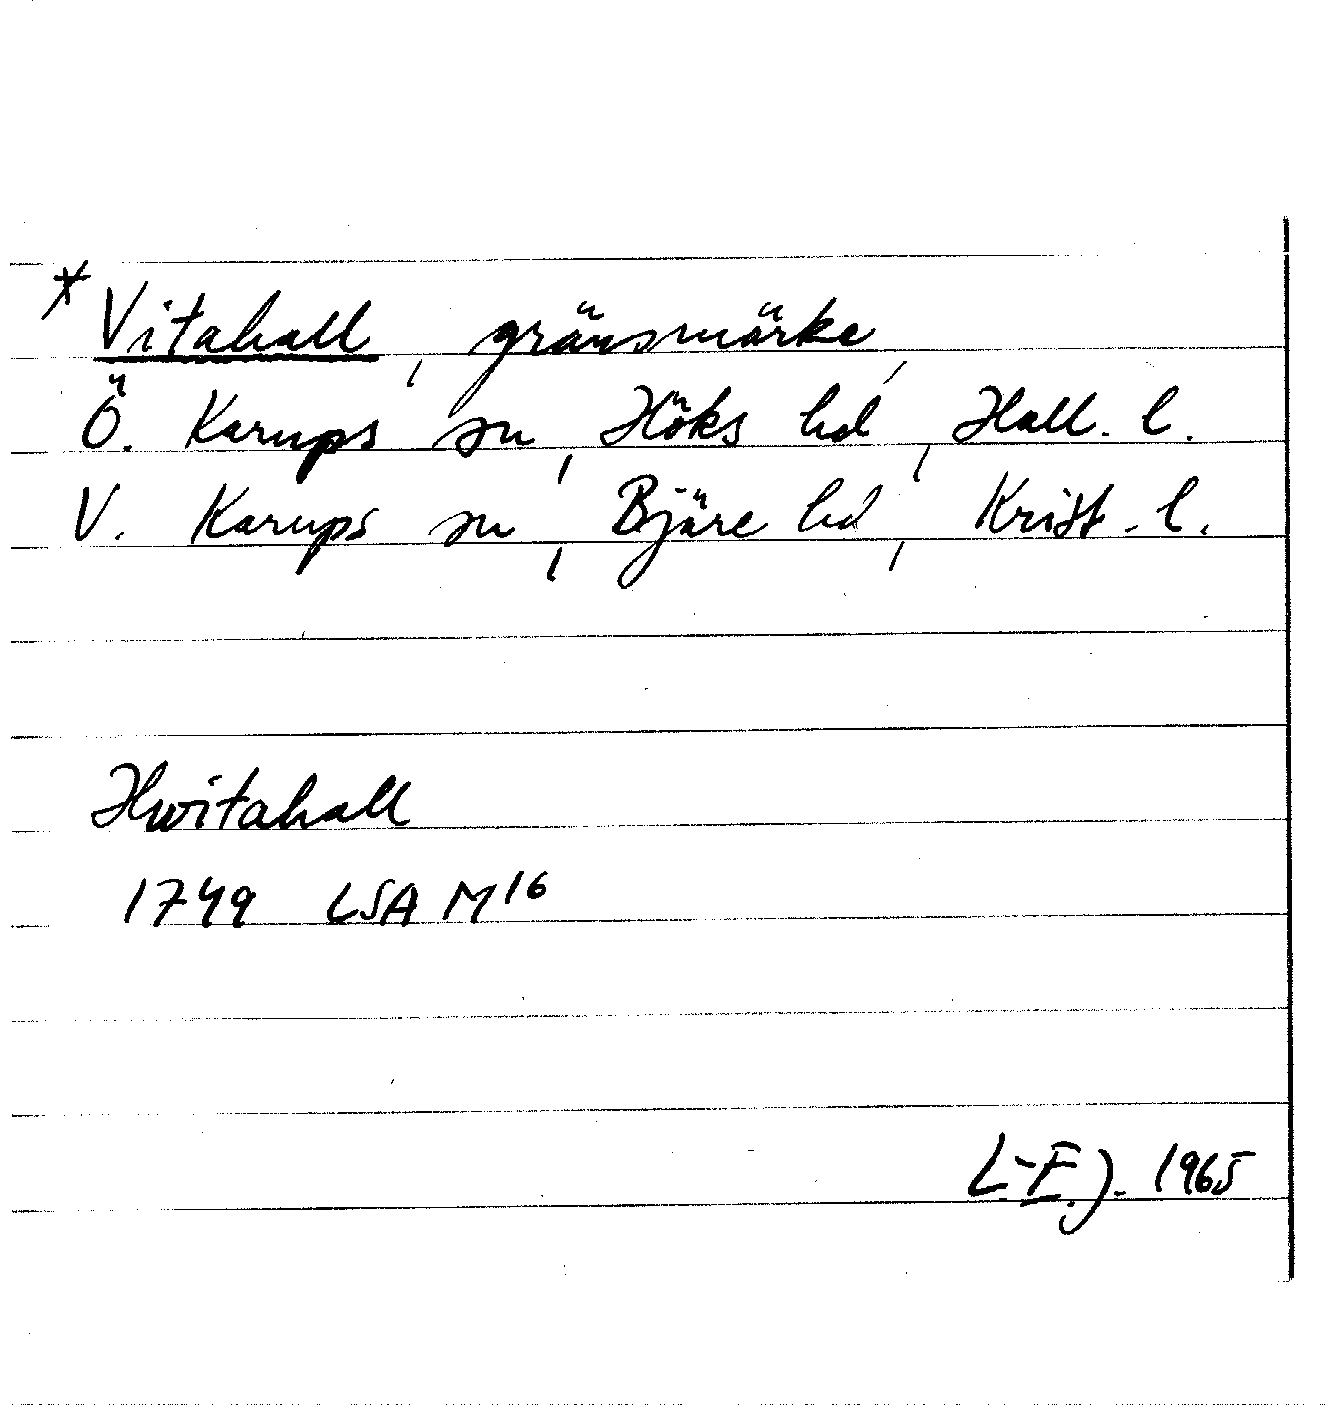 * Vitahall, gränsmärke,
Ö. Karups sn, Höks hd, Hall. l.
V. Karups sn, Bjäre hd, Krist. l.
Hwitahall
1749 LSA M16
L-E.J. 1965